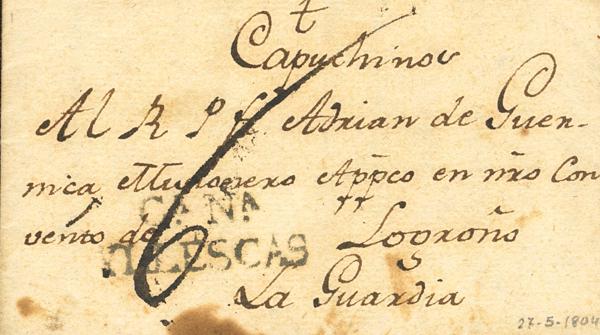 †
Capuchinos
Al R P fr Adrian de Guer-
nica Misionero Appco en nro Con
vento de Logroño
La Guardia
6
CAÑA
VILLESCAS
27-5-1804